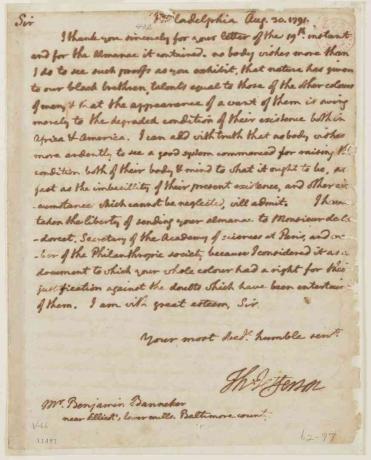 Sir Philadelphia Aug. 30. 1791.
I thank you sincerely for your letter of the 19th. instant
and for the almanac it contained. no body wishes more than
I do to see such proofs as you exhibit, that nature has given
to our black brethren, talents equal to those of the other colours
of men, & that the appearance of a want of them is owing
merely to the degraded condition of their existence both in
Africa & America. I can add with truth that no body wishes
more ardently to see a good system commenced for raising the
condition both of their body & mind to what it ought to be, as
fast as the imbecillity of their present existence, and other cir
cumstance which cannot be neglected, will admit. I have
taken the liberty of sending your almanac to Monsieur de
-dorcet, Secretary of the Academy of sciences at Paris, and
of the Philanthropic society because I considered it as a
document to which your whole colour had a right for their
justification against the doubts which have been entertained
of them. I am with great esteem, Sir
Your most obedt. humble servt.
Th: Jefferson
Mr. Benjamin Banneker
near Ellicot's, lower mills. Baltimore county.
62-97